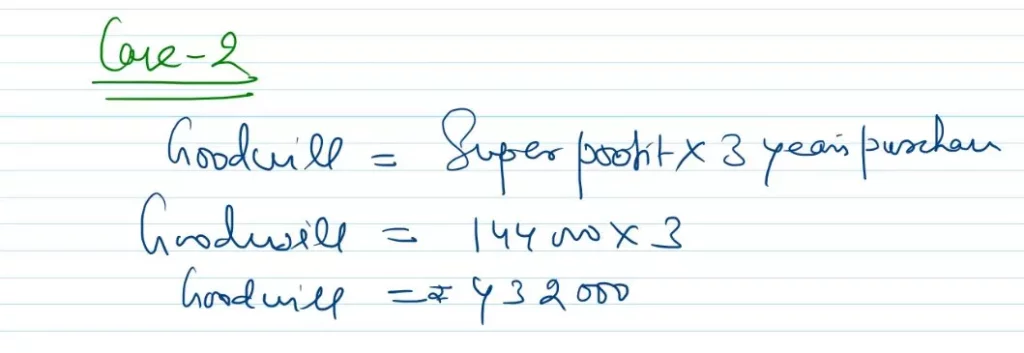 Case-2
Goodwill = Super profit × 3 years purchase
Goodwill = 144000 × 3
Goodwill = ₹ 432000